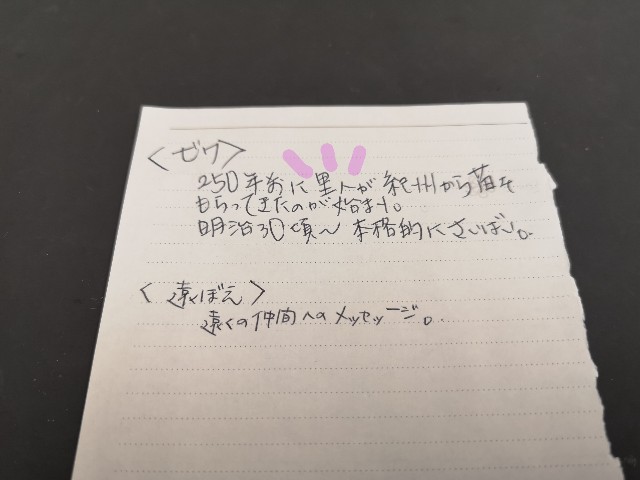 <ビワ>
250年前に里人が紀州から苗を
もらってきたのが始まり。
明治30頃〜 本格的にさいばい。
<遠ぼえ>
遠くの仲間へのメッセージ。